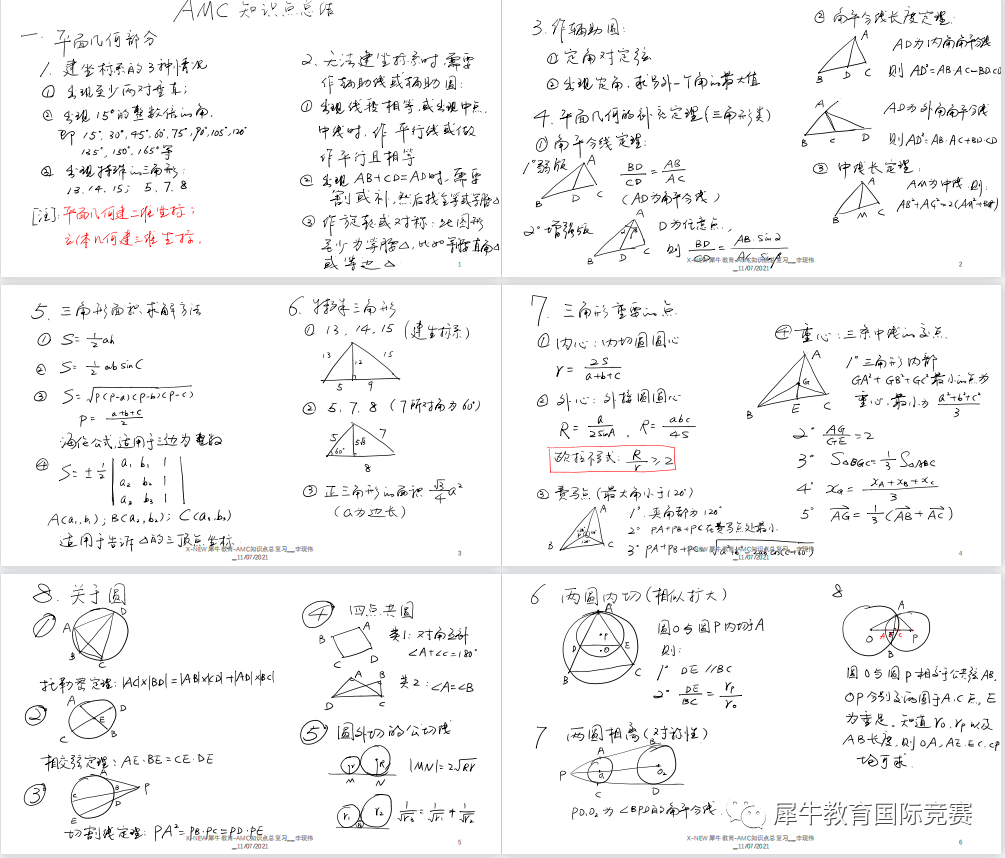 AMC 知识点总结
一. 平面几何部分
1. 建坐标系的3种情况
① 出现至少两对垂直;
② 出现15°的整数倍的角.
即 15°, 30°, 45°, 60°, 75°, 90°, 105°, 120°
135°, 150°, 165°等
③ 出现特殊的三角形:
13. 14. 15; 5. 7. 8
[注]: 平面几何建二维坐标;
立体几何建三维坐标.
2. 无法建坐标系时, 需要
作辅助线或辅助圆:
① 出现线段相等, 或出现中点.
中线时. 作 平行线或做
作平行且相等
② 出现 AB+CD=AD时. 需要
割或补, 然后找全等或等腰△
③ 作旋转或对称: 此图形
至少为等腰△, 比如等腰直角△
或等边△
1
3. 作辅助圆:
① 定角对定弦
② 出现定角, 求另外一个角的最大值
4. 平面几何的补充定理(三角形类)
① 角平分线定理:
1° 弱版
A
B D C
BD/CD = AB/AC
(AD为角平分线)
2° 增强版
A
B D C
D为任意点.,
则 BD/CD = AB·sin2/AC·sin1
② 角平分线长度定理:
A
B D C
AD为内角角平分线
则 AD²=AB·AC-BD·CD
A
B C D
AD为外角角平分线
则AD²=AB·AC+BD·CD
③ 中线长定理:
A
B M C
AM为中线 则:
X-NEW 犀牛教育-AMC知识点总复习__李现伟
_11/07/2021
2
5. 三角形面积求解方法
① S=½ah
② S=½ab sinC
③ S=√p(p-a)(p-b)(p-c)
P=(a+b+c)/2
海伦公式, 适用于三边为整数
④ S=±½ |a₁ b₁ 1|
|a₂ b₂ 1|
|a₃ b₃ 1|
A(a₁,b₁); B(a₂,b₂); C(a₃,b₃)
适用于告诉△的三顶点坐标.
6. 特殊三角形
① 13, 14, 15 (建坐标系)
13 12 15
5 9
② 5, 7, 8 (7所对角为60°)
5 7
60°
8
③ 正三角形的面积 √3/4 a²
(a为边长)
X-NEW 犀牛教育-AMC知识点总复习__李现伟
_11/07/2021
3
7. 三角形重要的点
① 内心: 内切圆圆心
r = 2S/(a+b+c)
② 外心: 外接圆圆心
R = a/2sinA , R = abc/4S
欧拉不等式: R/r ≥ 2
③ 费马点 (最大角小于120°)
A
B C
1° 夹角都为120°
2° PA+PB+PC在费马点处最小
④ 重心: 三条中线的交点
A
G
B E C
1° 三角形内部
GA²+GB²+GC²最小的点为
重心. 最小为 (a²+b²+c²)/3
2° AG/GE=2
3° S△BGC=⅓S△ABC
4° x_G = (x_A+x_B+x_C)/3
5° AG=⅓(AB+AC)
X-NEW 犀牛教育-AMC知识点总复习__李现伟
_11/07/2021
4
8. 关于圆
①
A D
B C
托勒密定理: |AC|×|BD|=|AB|×|CD|+|AD|×|BC|
②
A D
E
C B
相交弦定理: AE·BE=CE·DE
③
A
B P
E D
切割线定理: PA²=PB·PC=PD·PE
④ 四点共圆
A
B
C D
类1: 对角互补
∠A+∠C=180°
A B
D C
类2: ∠A=∠B
⑤ 圆外切的公切线
r R
M N
|MN|=2√Rr
r₁ r₂
X-NEW 犀牛教育-AMC知识点总复习__李现伟
_11/07/2021
5
6 两圆内切(相似扩大)
A
P
D O E
B C
圆O与圆P内切于A
则:
1° DE // BC
2° DE/BC = r_P/r_O
7 两圆相离(对称性)
A B
P O₁ O₂
C D
PO₁O₂ 为∠BPD的角平分线.
8
A
O A B C P
E
圆O与圆P相交于公共弦AB.
OP分别交两圆于A.C点, E
为垂足. 知道r_O, r_P以及
AB长度, 则OA, AE. EC. CP
均可求.
犀牛教育国际竞赛
6